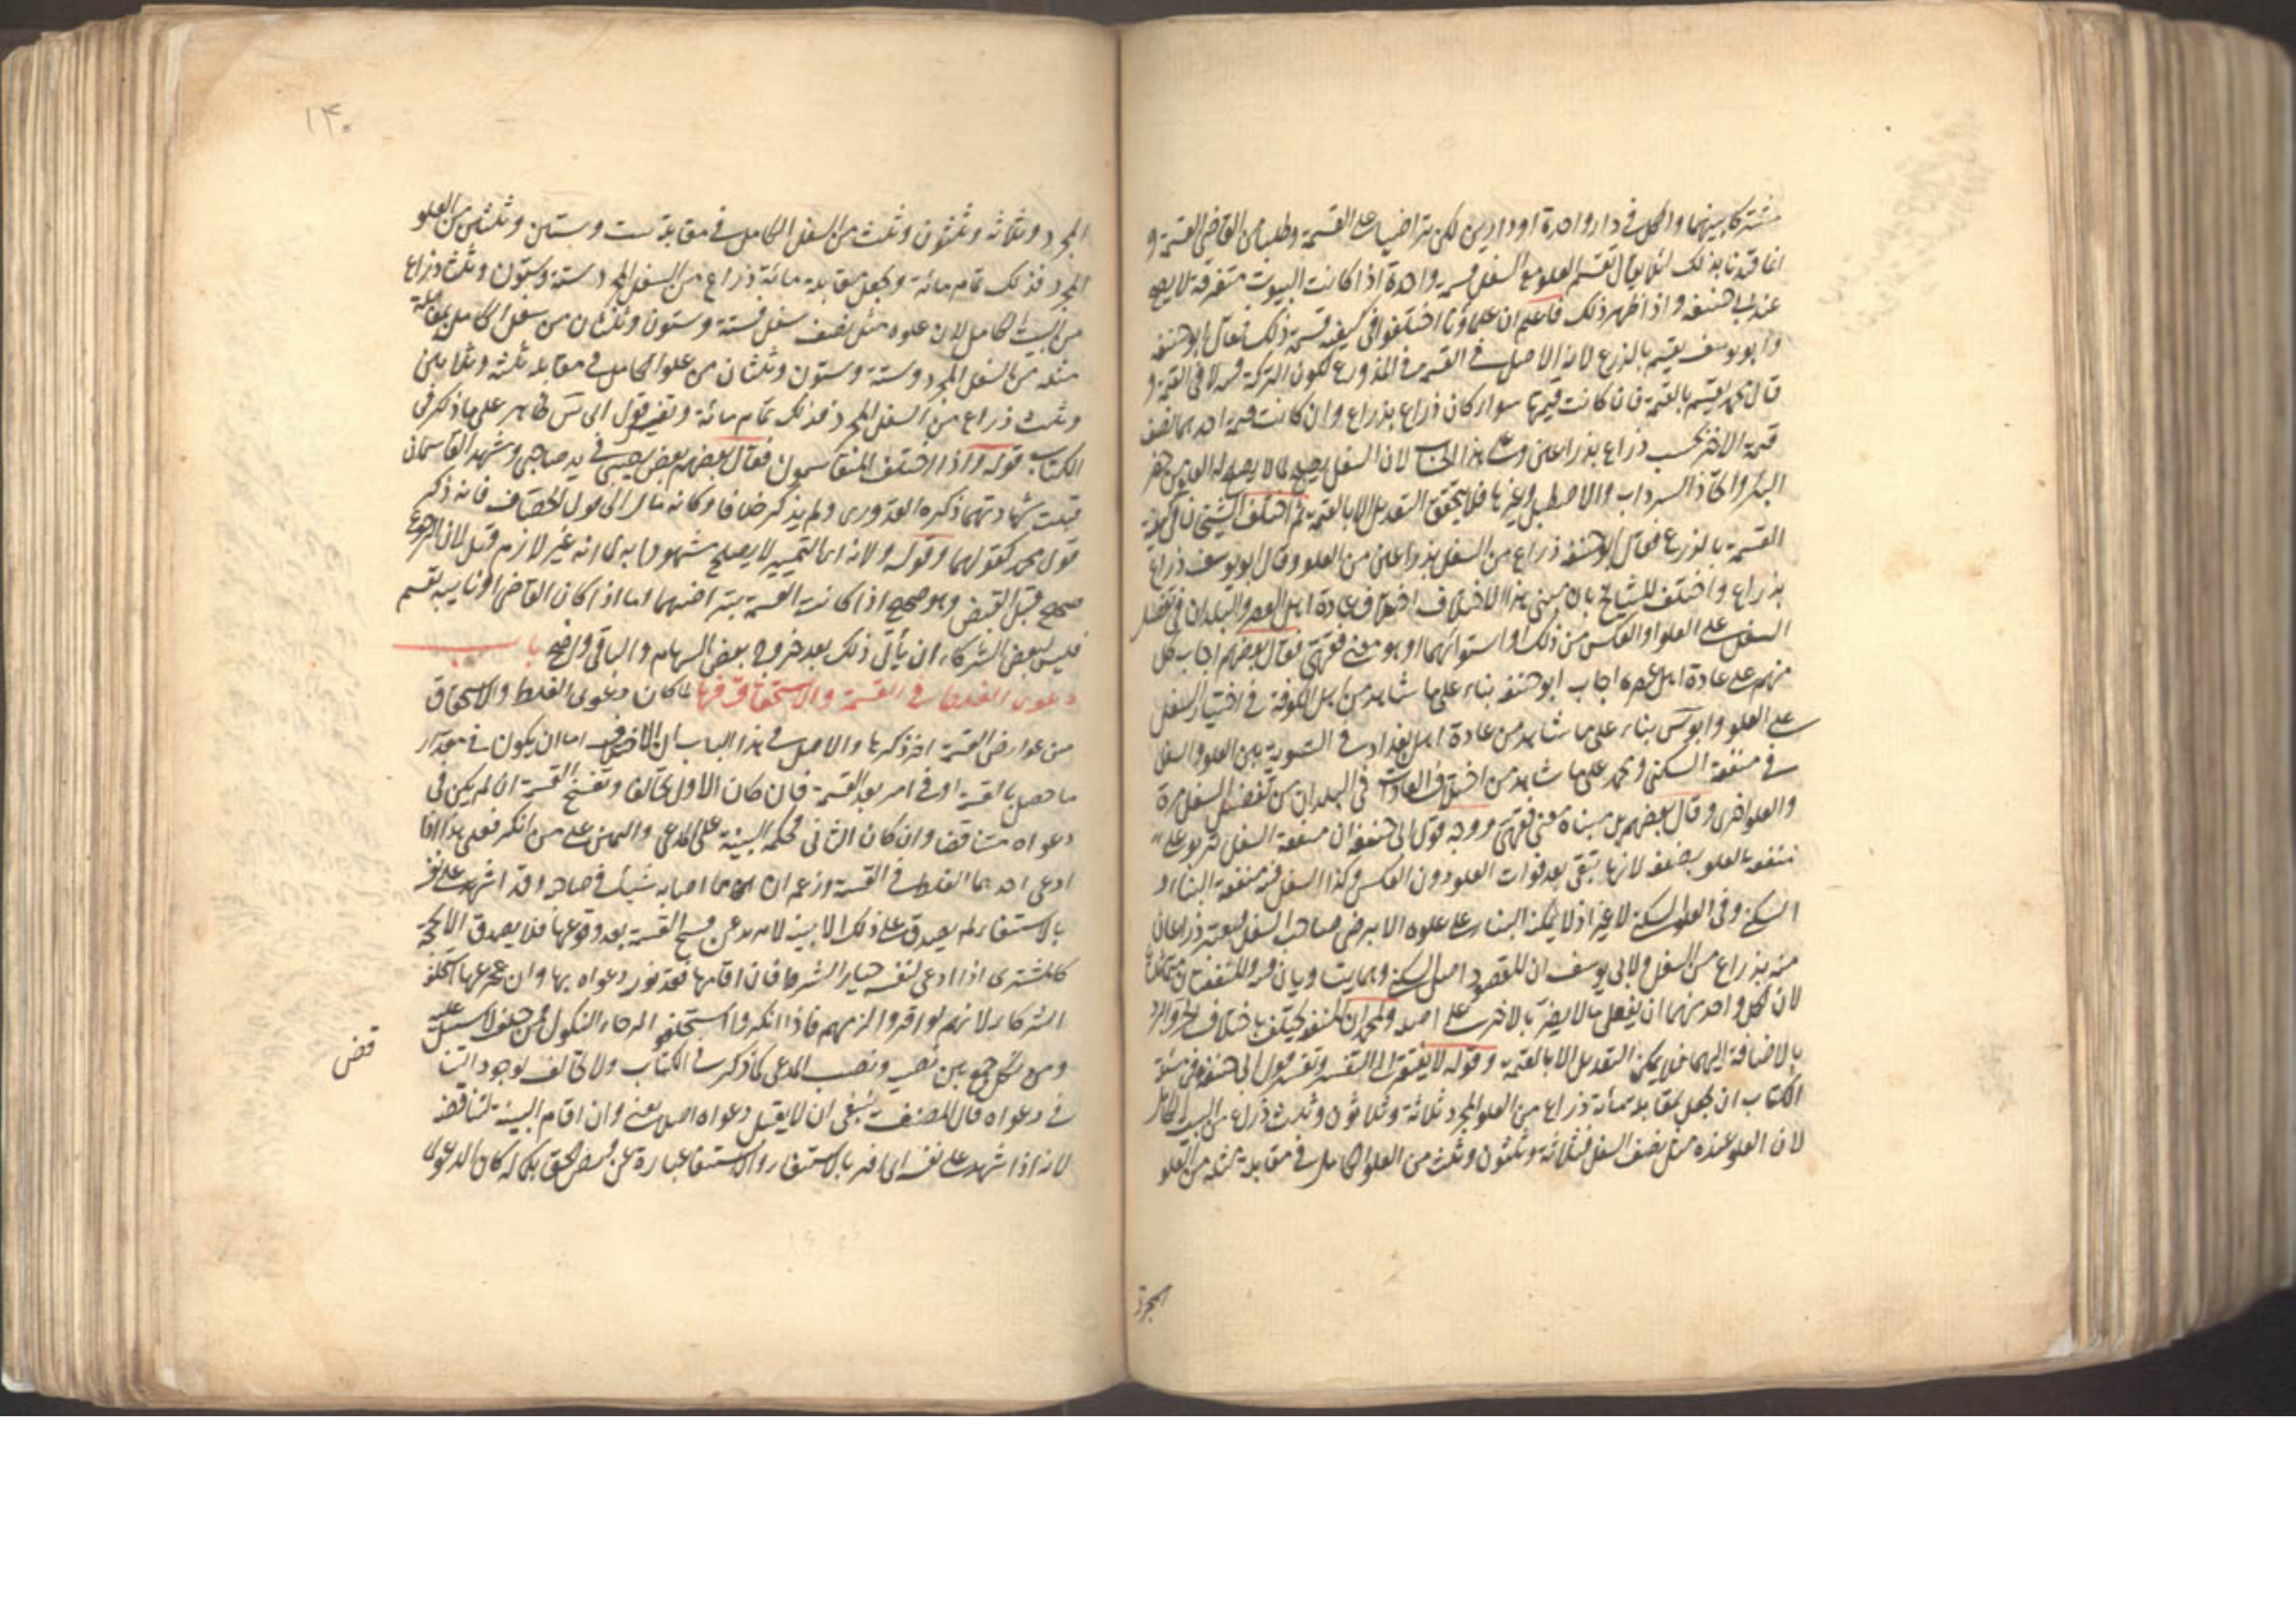 مشتركا بينهما والكل في دار واحدة او دارين لكن تراضيا على القسمة وطلبا من القاضي القسمة و
انما قيدنا بذلك لئلا يقال تقسم العلو مع السفل قسمة واحدة اذا كانت البيوت متفرقة لا يصح
عند ابي حنيفة واذا ظهر ذلك فاعلم ان علماؤنا اختلفوا في كيفية قسمة ذلك فقال ابو حنيفة
وابو يوسف يقسم بالذرع لانه الاصل في القسمة في المذروع لكون الشركة فيه لا في القيمة و
قال محمد يقسم بالقيمة فان كانت قيمتهما سواء كان ذراع بذراع وان كانت قيمة احدهما نصف
قيمة الاخر يحسب ذراع بذراعين وعلى هذا الحساب لان السفل يصلح لما لا يصلح له العلو من حفر
البئر واتخاذ السرداب والاصطبل وغيرها فلا يتحقق التعديل الا بالقيمة ثم اختلف الشيخان في كيفية
القسمة بالذرع فقال ابو حنيفة ذراع من السفل بذراعين من العلو وقال ابو يوسف ذراع
بذراع واختلف المشايخ بان مبنى هذا الاختلاف اختلاف عادة اهل العصر والبلدان في تفضيل
السفل على العلو او العكس من ذلك او استوائهما او هو معنى فقهي فقال بعضهم اجاب كل
منهم على عادة اهل عصره اجاب ابو حنيفة بناء على ما شاهد من اهل الكوفة في اختيار السفل
على العلو وابو س بناء على ما شاهد من عادة اهل بغداد في التسوية بين العلو والسفل
في منفعة السكنى ومحمد على ما شاهد من اختلاف العادات في البلدان من تفضيل السفل مرة
والعلو اخرى وقال بعضهم بل مبناه معنى فقهي ووجه قول ابي حنيفة ان منفعة السفل تربو على
منفعة العلو بضعفه لانها تبقى بعد فوات العلو دون العكس وكذا السفل فيه منفعة البناء و
السكنى وفي العلو السكنى لا غير اذ لا يمكنه البناء على علوه الا برضى صاحب السفل فيعتبر ذراعان
منه بذراع من السفل ولابي يوسف ان المقصود اصل السكنى وهما يتساويان فيه والمنفعتان متماثلتان
لان لكل واحد منهما ان يفعل ما لا يضر بالاخر على اصله ولمحمد ان المنفعة تختلف باختلاف الحر والبرد
بالاضافة اليهما فلا يمكن التعديل الا بالقيمة وقوله لا يفتقر الى التفسير وتفسير قول ابي حنيفة في مسئلة
الكتاب ان يجعل بمقابلة مائة ذراع من العلو المجرد ثلاثة وثلاثون وثلث ذراع من البيت الكامل
لان العلو عنده مثل نصف السفل فثلاثة وثلثون وثلث من العلو الكامل في مقابلة مثله من العلو
المجرد
١٣٠
المجرد وثلاثة وثلثون وثلث من السفل الكامل في مقابلة ست وستين وثلثين من العلو
المجرد فذلك تمام مائة ويجعل بمقابلة مائة ذراع من السفل المجرد ستة وستون وثلث ذراع
من البيت الكامل لان علوه مثل نصف سفله فستة وستون وثلثان من سفل الكامل بمقابلة
مثله من السفل المجرد وستة وستون وثلثان من علو الكامل في مقابلة ثلثة وثلاثين
وثلث ذراع من السفل المجرد فذلك تمام مائة وتفسير قول ابي س ظاهر على ما ذكر في
الكتاب قوله واذا اختلف المتقاسمون فقال بعضهم بعض نصيبي في يد صاحبي وشهد القاسمان
قبلت شهادتهما ذكره القدوري ولم يذكر خلافا وكانه مال الى قول الخصاف فانه ذكر
قول محمد كقولهما وقوله ولانه اي التمييز لا يصلح مشهودا به اي انه غير لازم قبل لان الرجوع
صحيح قبل القبض وهو صحيح اذا كانت القسمة بتراضيهما واما اذا كان القاضي او نايبه يقسم
فليس لبعض الشركاء ان يأبى ذلك بعد خروج بعض السهام والباقي واضح باب
دعوى الغلط في القسمة والاستحقاق فيها لما كان دعوى الغلط والاستحقاق
من عوارض القسمة اخر ذكرها والاصل في هذا الباب ان الاختلاف اما ان يكون في مقدار
ما حصل بالقسمة او في امر بعد القسمة فان كان الاول تحالفا وتفسخ القسمة ان لم يكن في
دعواه متناقضا وان كان الثاني فحكمه البينة على المدعي واليمين على من انكر فعلى هذا اذا
ادعى احدهما الغلط في القسمة وزعم ان مما اصابه شيئا في يد صاحبه وقد اشهد على نفسه
بالاستيفاء لم يصدق على ذلك الا ببينة لانه يدعي فسخ القسمة بعد وقوعها فلا يصدق الا بحجة
كالمشتري اذا ادعى لنفسه خيار الشرط فان اقامها فقد نور دعواه بها وان عجز عنها استحلف
الشركاء لانهم لو اقروا لزمهم فاذا انكروا استحلفوا لرجاء النكول فمن حلف لا سبيل عليه
ومن نكل جمع بين نصيبه ونصيب المدعي كما ذكر في الكتاب ولا تحالف لوجود التنا
قض
في دعواه قال المصنف ينبغي ان لا يقبل دعواه اصلا يعني وان اقام البينة لتناقضه
لانه اذا شهد على نفسه اي اقر بالاستيفاء والاستيفاء عبارة عن قبض الحق بكماله كان الدعوى